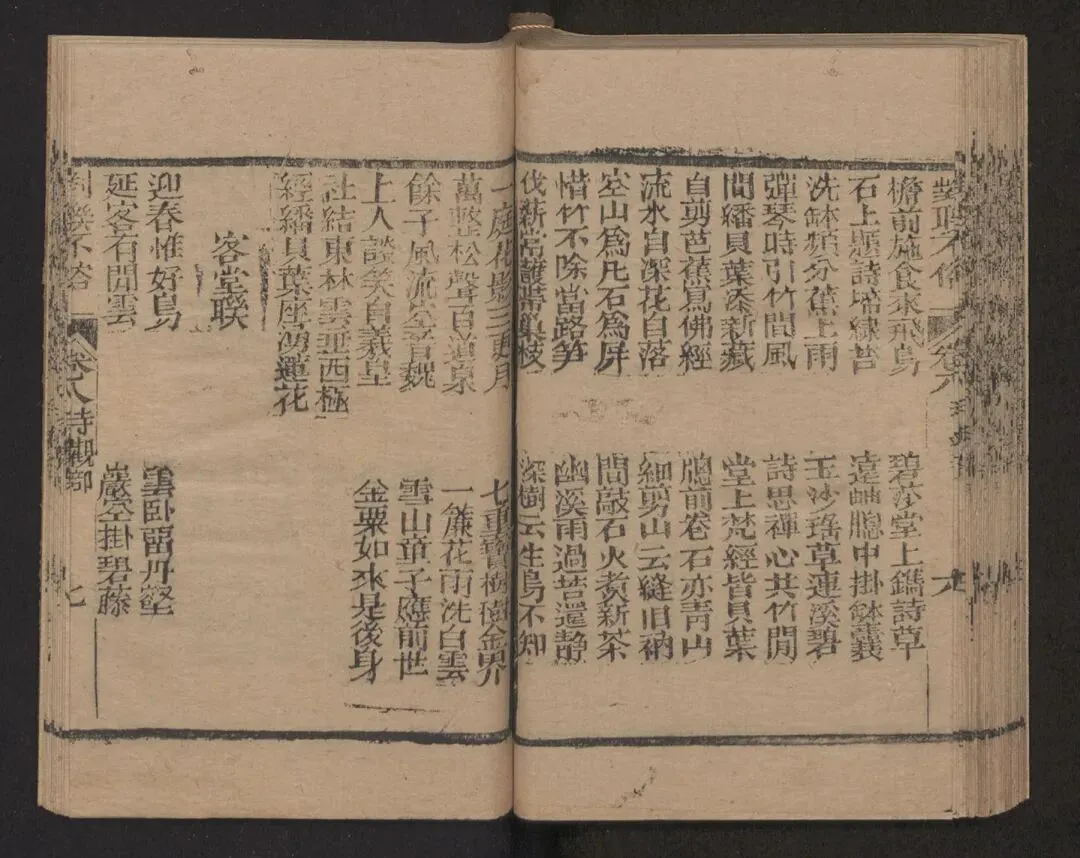 對聯不俗
卷八
檐前施食來飛鳥
碧莎堂上鐫詩草
石上題詩埽綠苔
遠岫牕中掛缽囊
洗缽頻分蕉上雨
玉沙瑤草連溪碧
彈琴時引竹間風
詩思禪心共竹閒
間繙貝葉添新藏
堂上梵經皆貝葉
自剪芭蕉寫佛經
牕前卷石亦青山
流水自深花自落
細剪山云縫旧衲
空山為凡石為屏
間敲石火煮新茶
惜竹不除當路笋
幽溪雨過苔還靜
伐薪常護帶巢枝
深樹云生鳥不知
一庭花影三更月
七重寶樹金界
萬壑松聲百道泉
一簾花雨洗白雲
餘子風流空晉魏
雪山童子應前世
上人談笑自羲皇
金粟如來是後身
社結東林雲亞西極
經繙貝葉座湧蓮花
客堂聯
迎春惟好鳥
雲臥留丹壑
延客有閒雲
巖空掛碧藤
對聯不俗
卷八
寺觀部
七